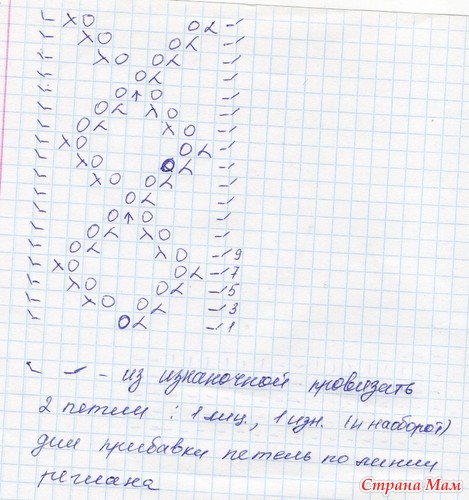 9
7
5
3
1
– из изнаночной провязать
2 петли : 1 лиц., 1 изн. (и наоборот)
для прибавки петель по линии
реглана
Страна Мам